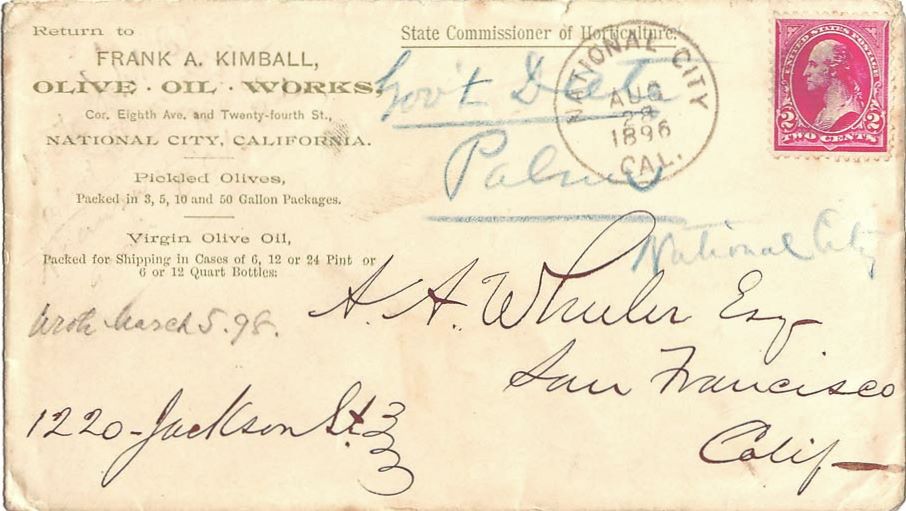 Return to
FRANK A. KIMBALL,
OLIVE · OIL · WORKS,
Cor. Eighth Ave. and Twenty-fourth St.,
NATIONAL CITY, CALIFORNIA.
Pickled Olives,
Packed in 3, 5, 10 and 50 Gallon Packages.
Virgin Olive Oil,
Packed for Shipping in Cases of 6, 12 or 24 Pint or
6 or 12 Quart Bottles:
State Commissioner of Horticulture.
Gov't
NATIONAL CITY
AUG
28
1896
CAL.
UNITED STATES POSTAGE
2 2
TWO CENTS
National City
Wrote March 5. 98.
A. A. Wheeler Esq
San Francisco
Calif
1220 - Jackson St.